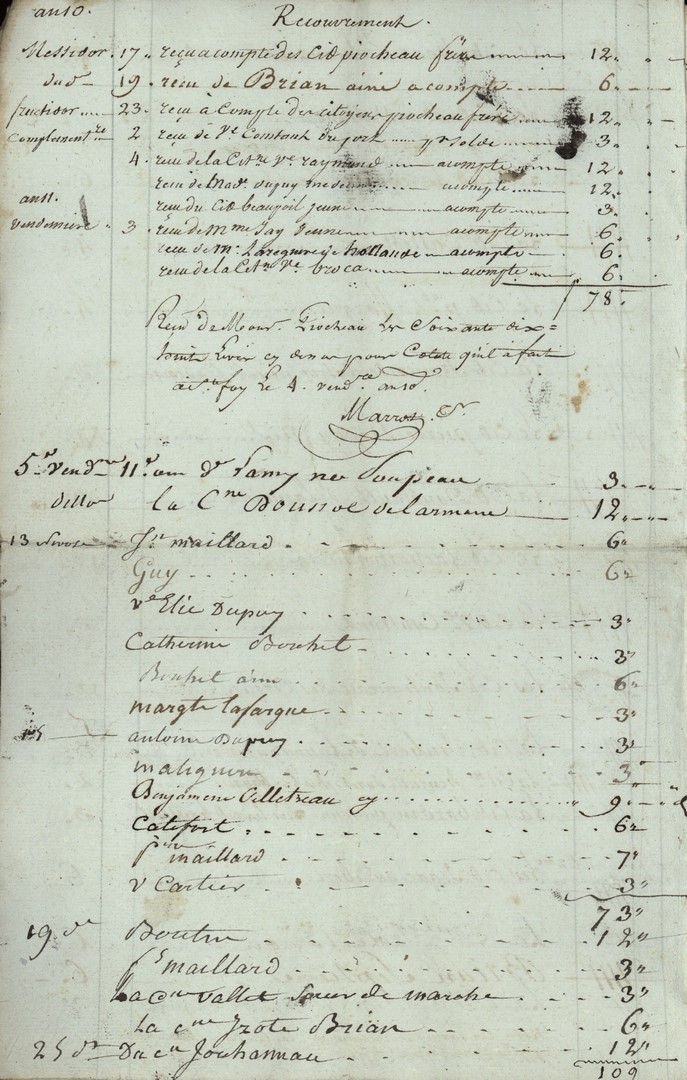 an 10. Recouvrement.
Messidor. 17 " reçu a compte des Cit piocheau frere 12 "
du do 19. reçu de Brian ainé a compte 6 "
fructidor 23. reçu à Compte des citoyens piocheau frére 12 "
Complementre 2 reçu de Ve Constant du port pr solde 3 "
4. recu de la Citne ve raymond acompte 12 "
recu de Made dupuy acompte 12.
recu du Cit beaupoil jeune acompte 3.
an 11.
vendemiere 3. recu de Mme Jay acompte 6.
recu de Mr hollande acompte 6.
recu de la Citne Ve broca acompte 6.
78.
Reçu de Monsr. Piocheau Les Soixante dix=
huite Livre cy dessus pour Cotete qu'il a fait
a Ste foy Le 4. vendre an 10.
Marros
5 r Vendre 11 Lamy neé Loupeau 3. "
Dello La Cne Doussot de larmane 12 "
13 nivose Jn maillard 6 "
Guy 6 "
ve Elie Dupuy 3 "
Catherine Bouhet 3 "
Bouhet 6 "
margte lafargue 3 "
15 antoine Dupuy 3 "
3 "
Benjamine Celletreau cy 9 "
Catefort 6 "
maillard 7 "
v Cartier 3 "
73 "
19 do Boutin 12 "
maillard 3 "
La Cne vallet Soeur de marche 3 "
La cne Brian 6 "
25 do Du cn Jouhanneau 12 "
109